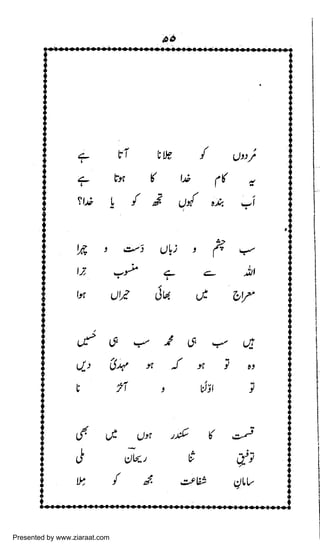 ۵۵
مُردوں کو جلانا آتا ہے
یہ کام خدا کا ہوتا ہے
اَب بندہ کہوں تجھ کو یا خدا؟
سب چشم و زباں دَست و چہرا
اللہ سے ہے منسوب ترا
معراج میں بھائی حیراں ہوا
ہیں سب ہی محمدؐ سب ہی حُسیں
وہ تو ہو کہ ہو مہدیؑ دیں
تو اوّلنا و آخرُ نا
قسمت کا سکندر ہوں میں بھی
توفیقِ ثنا ریحانؔ ملی
سامانِ شفاعت مجھ کو مِلا
Presented by www.ziaraat.com